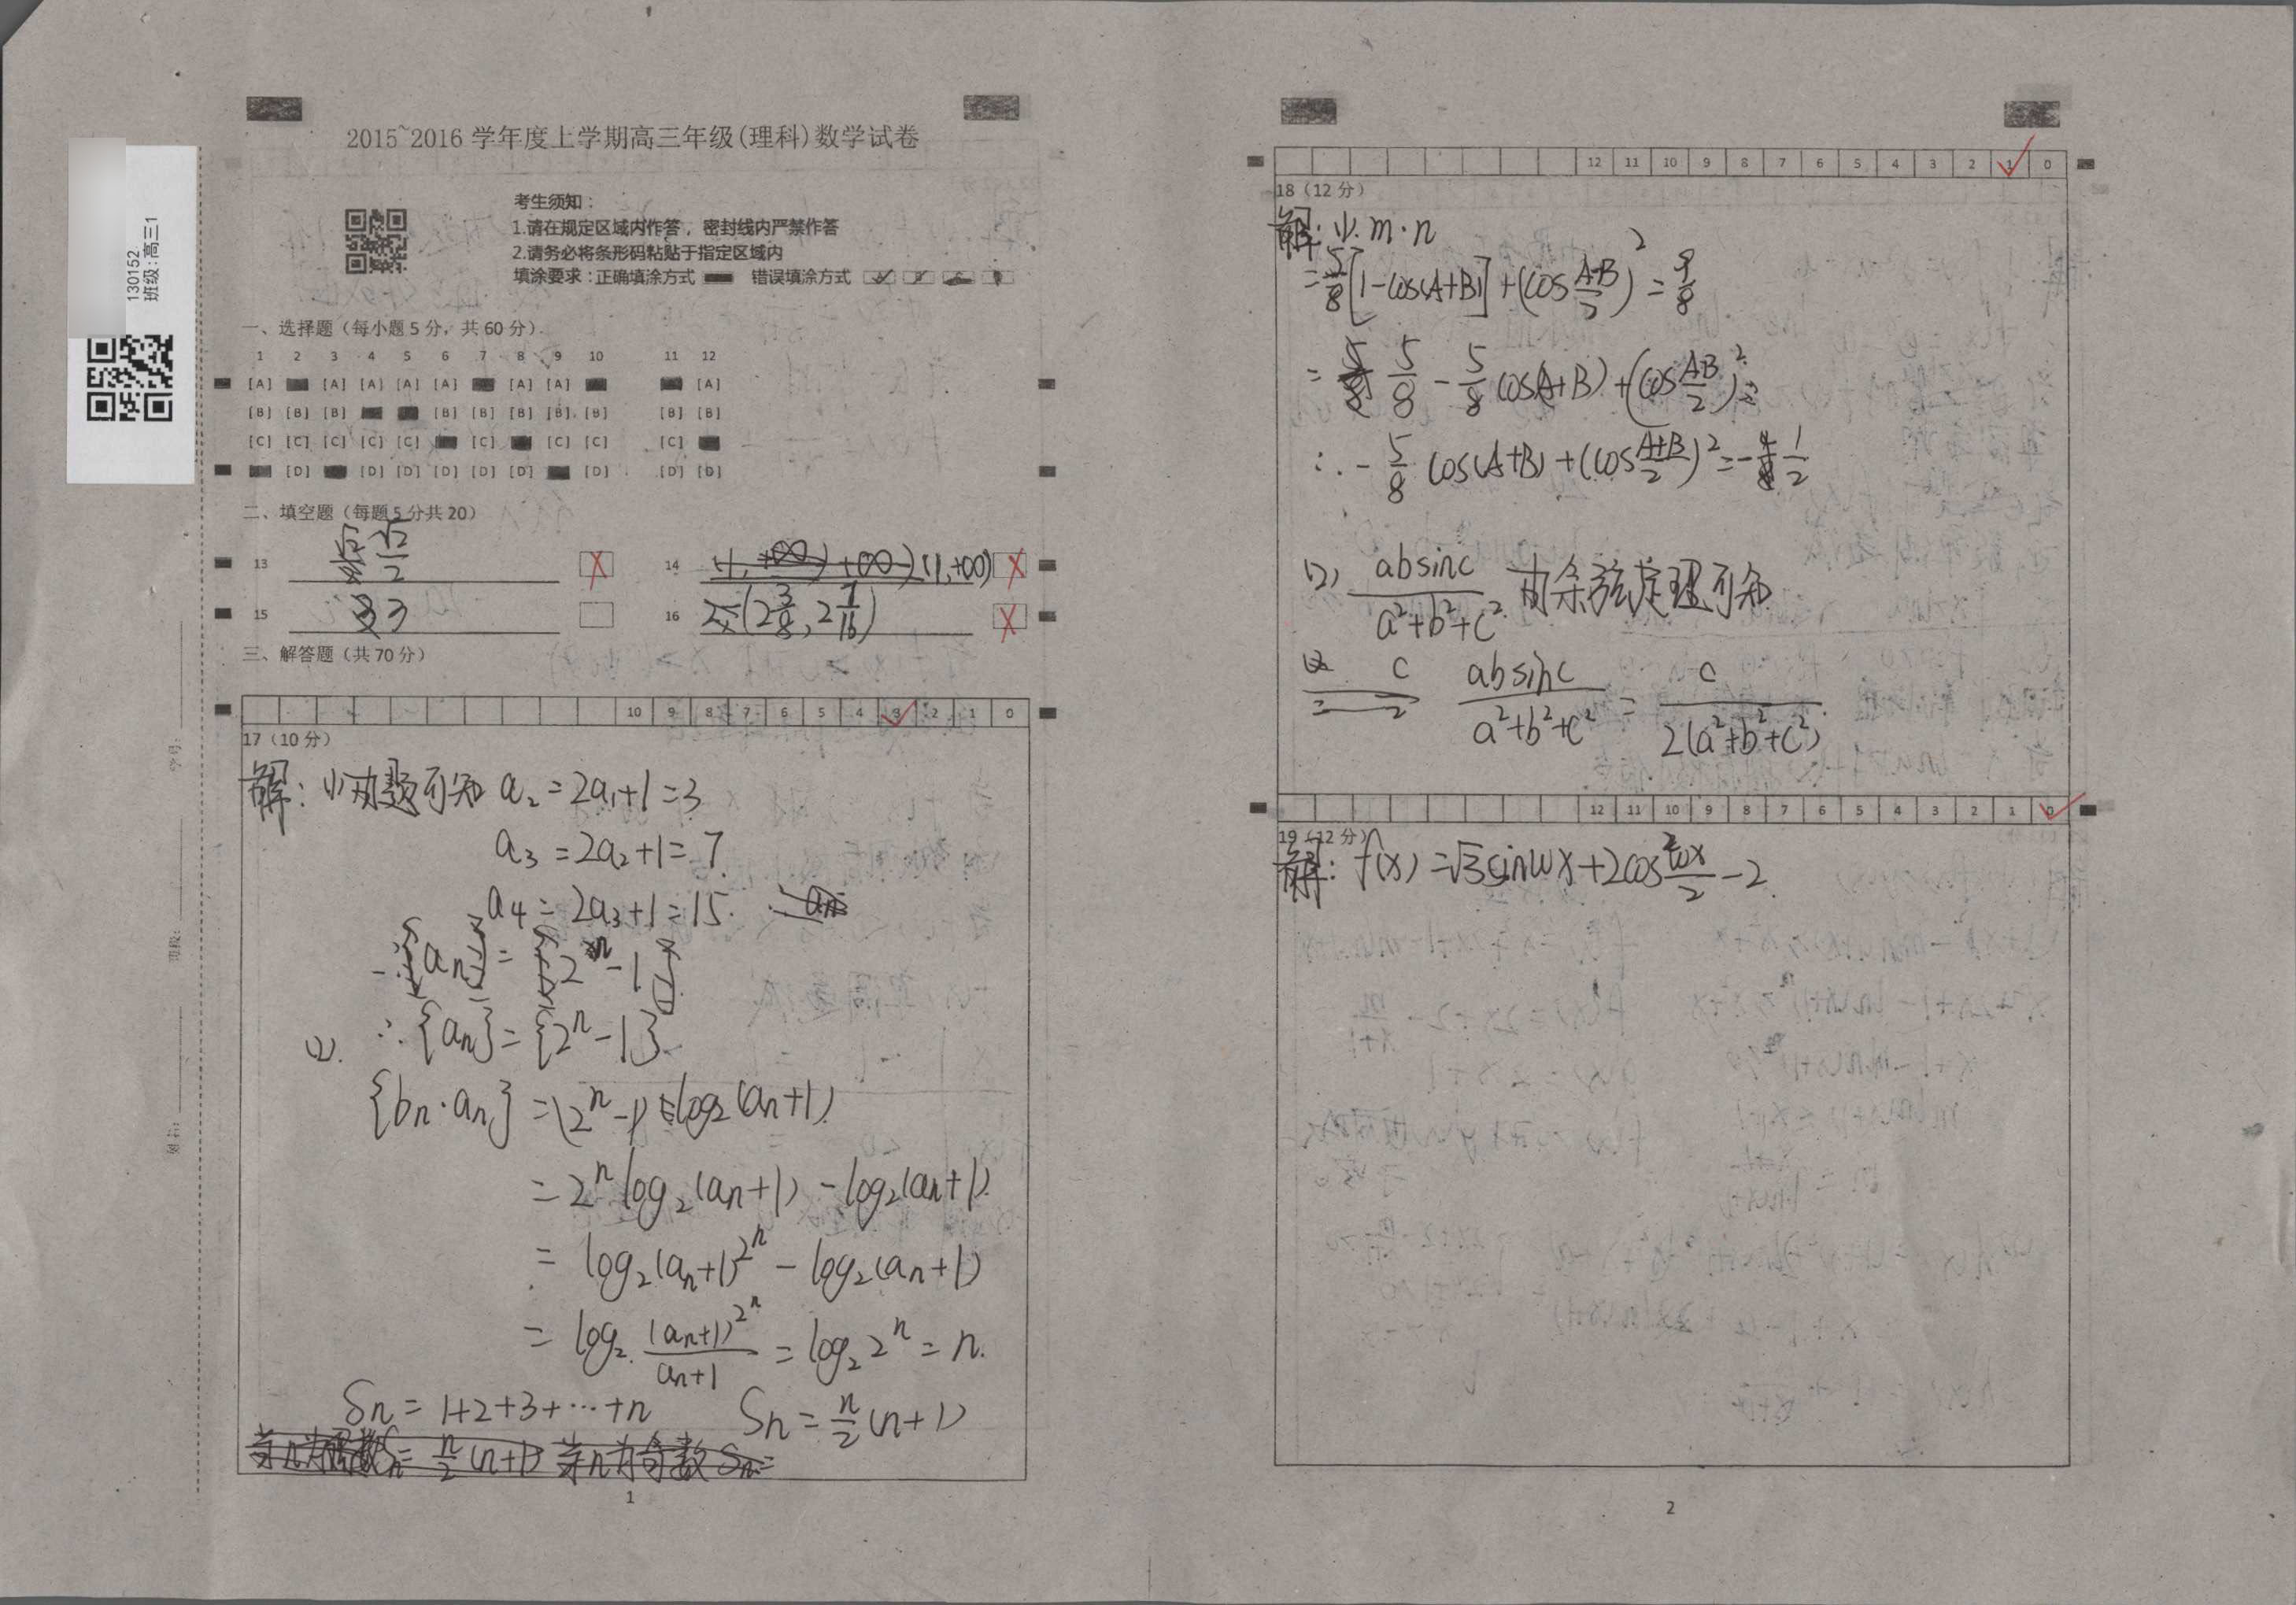 2015~2016 学年度上学期高三年级(理科)数学试卷
130152
班级:高三1
考生须知:
1.请在规定区域内作答,密封线内严禁作答
2.请务必将条形码粘贴于指定区域内
填涂要求:正确填涂方式 错误填涂方式
一、选择题(每小题5分,共60分).
1 2 3 4 5 6 7 8 9 10 11 12
[A] [A] [A] [A] [A] [A] [A] [A]
[B] [B] [B] [B] [B] [B] [B] [B] [B] [B]
[C] [C] [C] [C] [C] [C] [C] [C] [C]
[D] [D] [D] [D] [D] [D] [D] [D] [D]
二、填空题(每题5分共20)
13 √2/2
14 (1,+∞)
15 3
16 (2 3/8, 2 7/16)
三、解答题(共70分)
10 9 8 7 6 5 4 3 2 1 0
17(10分)
解:(1)由题可知 a₂=2a₁+1=3
a₃=2a₂+1=7
a₄=2a₃+1=15.
∴{aₙ}={2ⁿ-1}
∴{aₙ}={2ⁿ-1}
(2).
{bₙ·aₙ}=(2ⁿ-1)·log₂(aₙ+1)
=2ⁿlog₂(aₙ+1)-log₂(aₙ+1)
=log₂(aₙ+1)^2ⁿ-log₂(aₙ+1)
=log₂ (aₙ+1)^2ⁿ/(aₙ+1)=log₂2ⁿ=n.
Sₙ=1+2+3+…+n Sₙ=n/2(n+1)
当n为偶数Sₙ=n/2(n+1) 当n为奇数Sₙ=
1
学号:
班级:
姓名:
12 11 10 9 8 7 6 5 4 3 2 1 0
18(12分)
解:(1).m·n
=5/8[1-cos(A+B)]+(cos (A-B)/2)²=9/8
=5/8-5/8cos(A+B)+(cos (A-B)/2)²=
∴-5/8cos(A+B)+(cos (A+B)/2)²=-1/2
(2) absinC/(a²+b²+c²) 由余弦定理可知
absinC/(a²+b²+c²)=c/2(a²+b²+c²)
12 11 10 9 8 7 6 5 4 3 2 1 0
19(12分)
解:f(x)=√3sinωx+2cos² ωx/2-2
2